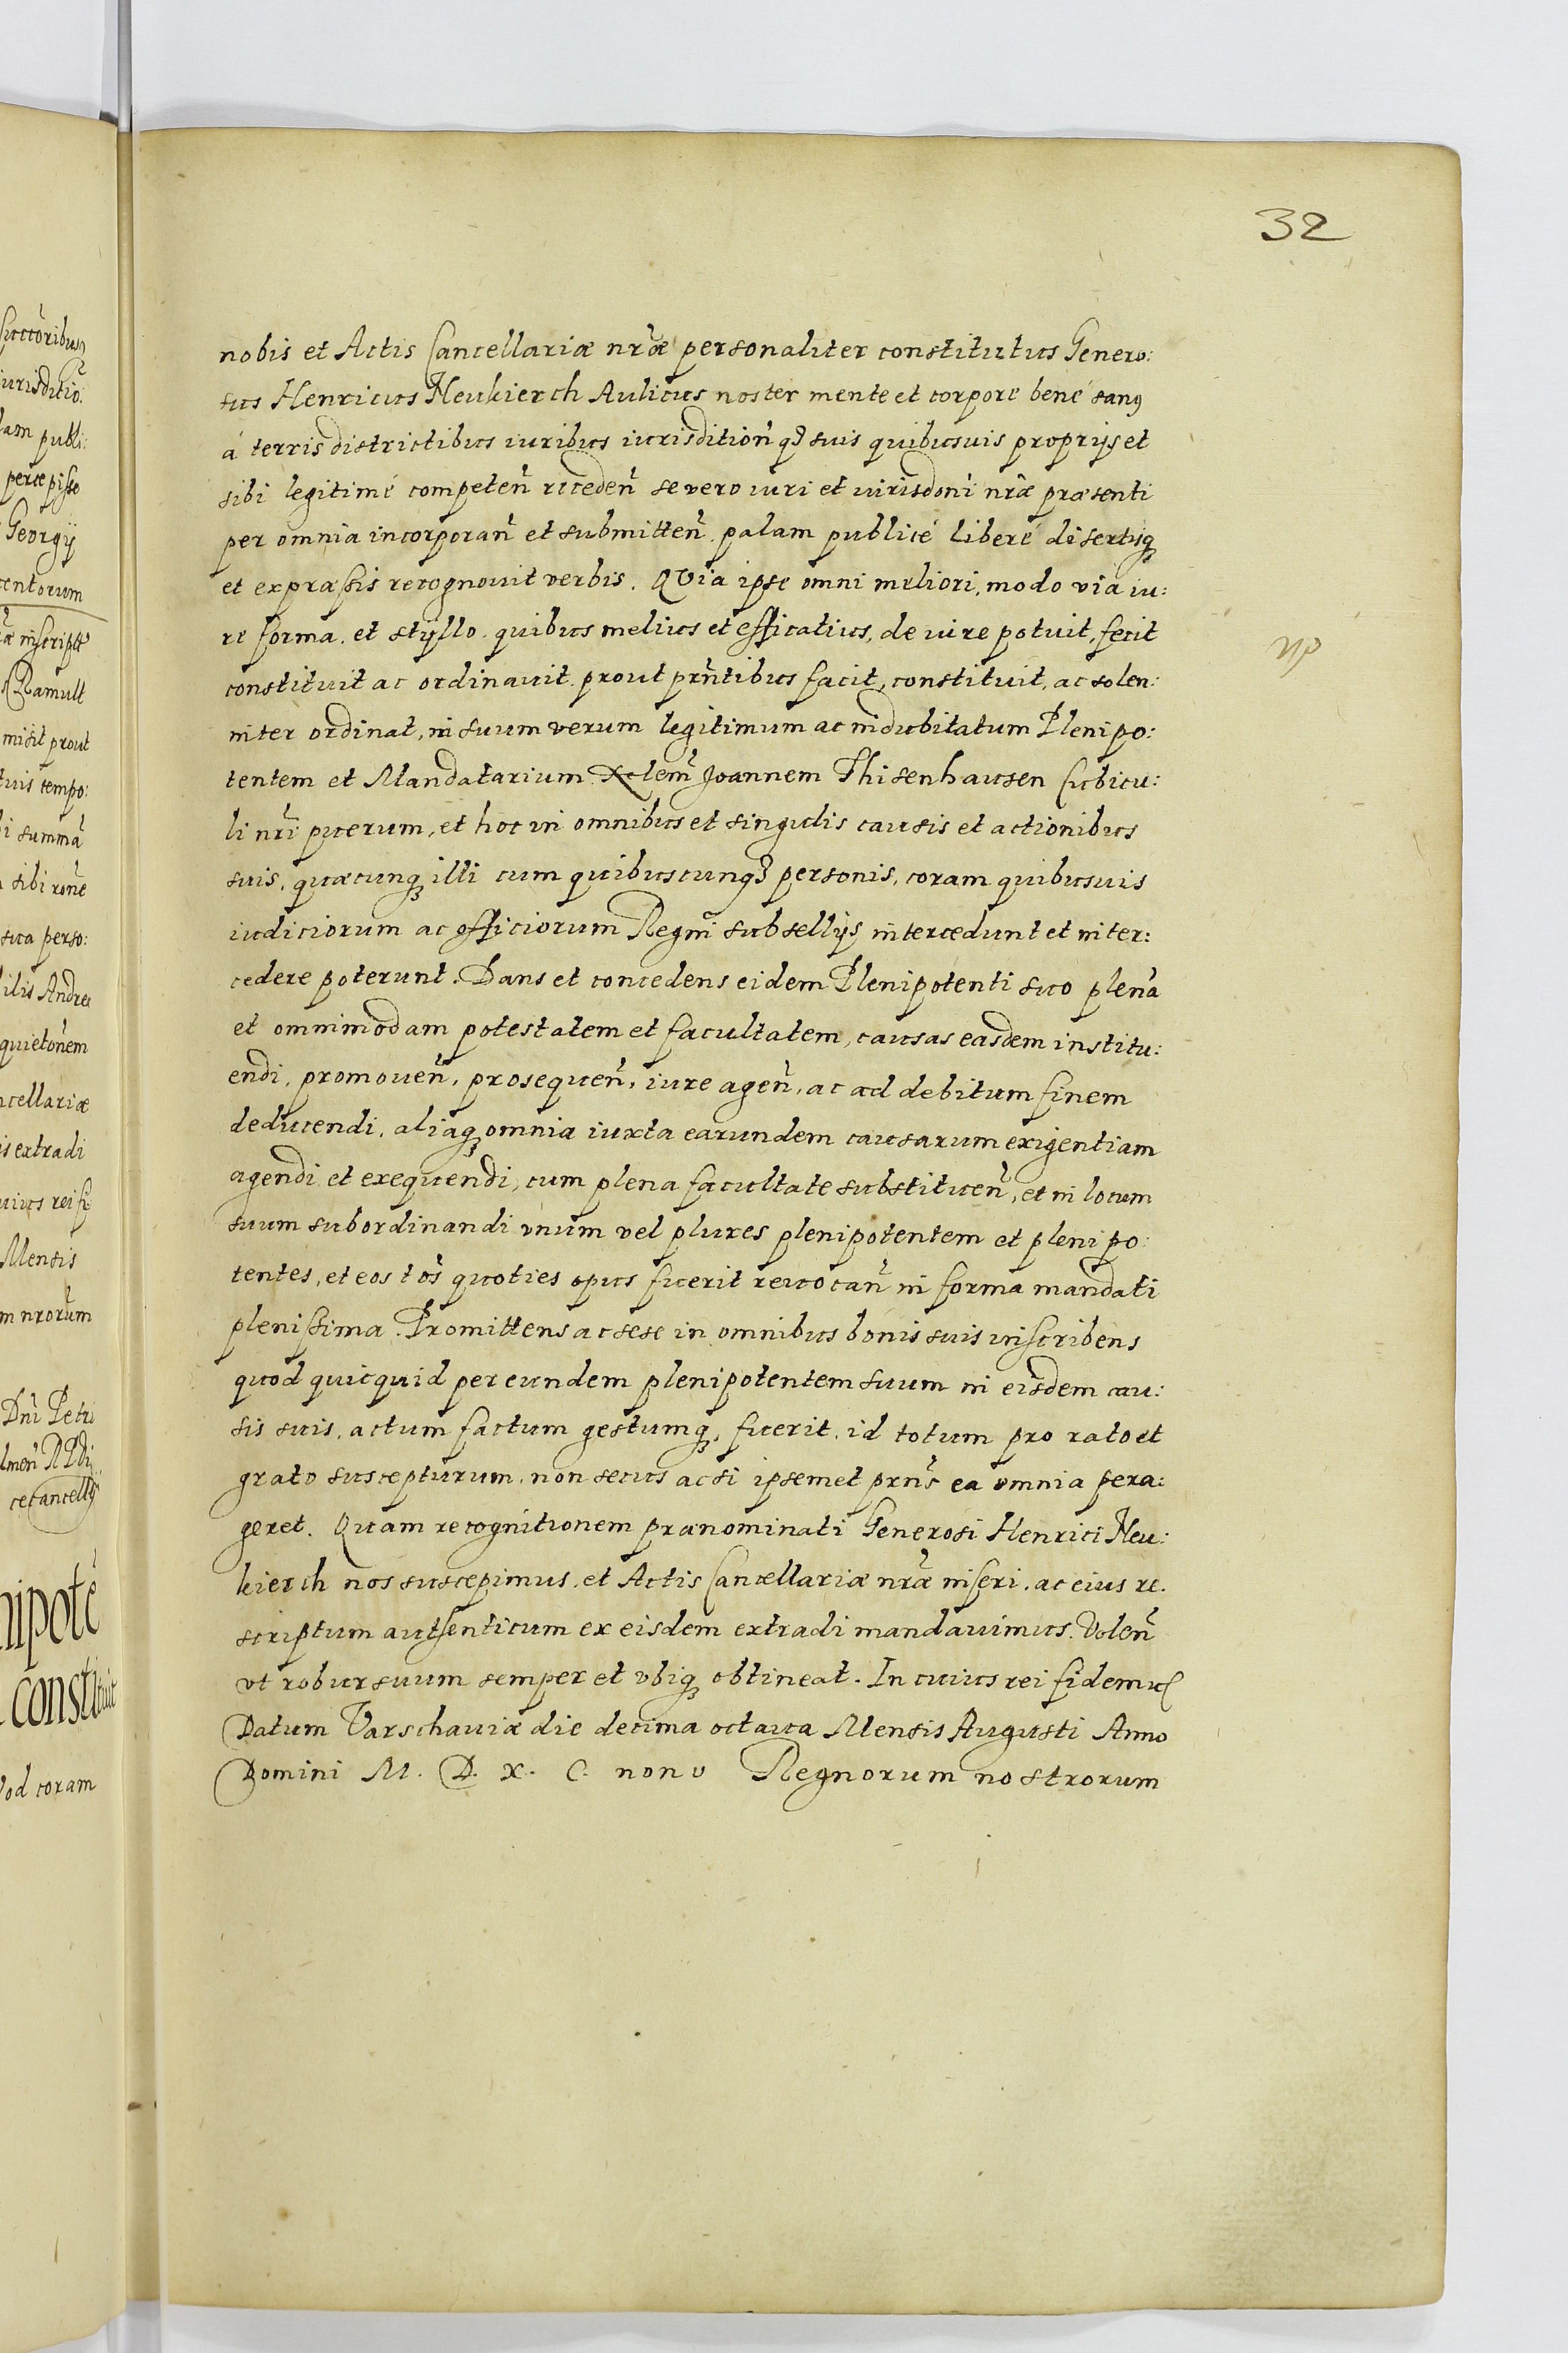 32
nobis et Actis Cancellariæ nr̃æ personaliter constitutus Genero:
sus Henricus Neukierch Aulicus noster mente et corpore bené sanꝰ
á terris districtibus iuribus iurisdition̄ qꝫ suis quibusuis proprijs et
sibi legitimé competen̄ receden̄ se vero iuri et iurisdoñi nr̃æ præsenti
per omnia incorporan̄ et submitten̄. palam publicé liberé disertisqꝫ
et expræssis recognouit verbis. QVia ipse omni meliori, modo via iu:
re forma. et styllo. quibus melius et efficatius, de iure potuit, fecit
constituit ac ordinauit. prout prñtibus facit, constituit, ac solen:
niter ordinat, in suum verum legitimum ac indubitatum Plenipo:
tentem et Mandatarium Joannem Thisenhausen Cubicu:
li nr̃i puerum, et hoc in omnibus et singulis causis et actionibus
suis, quæcunqꝫ illi cum quibuscunqꝫ personis, coram quibusuis
iudiciorum ac officiorum Regni subsellijs intercedunt et inter:
cedere poterunt. Dans et concedens eidem Plenipotenti suo plenā
et omnimodam potestatem et facultatem, causas easdem institu:
endi, promouen̄, prosequen̄, iure agen̄, ac ad debitum finem
deducendi, aliaqꝫ omnia iuxta earundem causarum exigentiam
agendi et exequendi, cum plena facultate substituen̄, et in locum
suum subordinandi vnum vel plures plenipotentem et plenipo:
tentes, et eos tos̄ quoties opus fuerit reuocan̄ in forma mandati
plenissima. Promittens ac sese in omnibus bonis suis inscribens
quod quicquid per eundem plenipotentem suum in eisdem cau:
sis suis, actum factum gestumqꝫ, fuerit, id totum pro rato et
grato suscepturum, non secus ac si ipsemet prñs ea omnia pera:
geret. Quam recognitionem prænominati Generosi Henrici Neu:
kierch nos suscepimus, et Actis Cancellariæ nr̃æ inseri, ac eius re.
scriptum authenticum ex eisdem extradi mandauimus. Volen̄
vt robur suum semper et vbiqꝫ obtineat. In cuius rei fidem
Datum Varschauiæ die decima octaua Mensis Augusti Anno
Domini M. D. X. C. nono Regnorum nostrorum